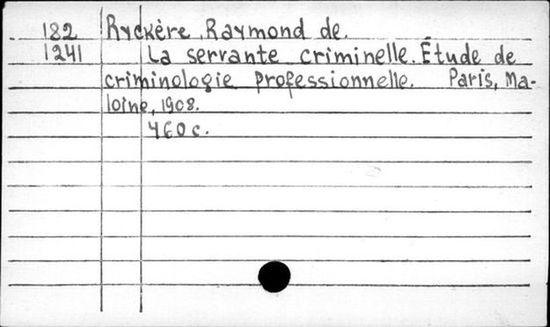 182 Ryckère, Raymond de.
1241 La servante criminelle. Étude de
criminologie professionnelle. Paris, Ma-
loine, 1908.
460 c.